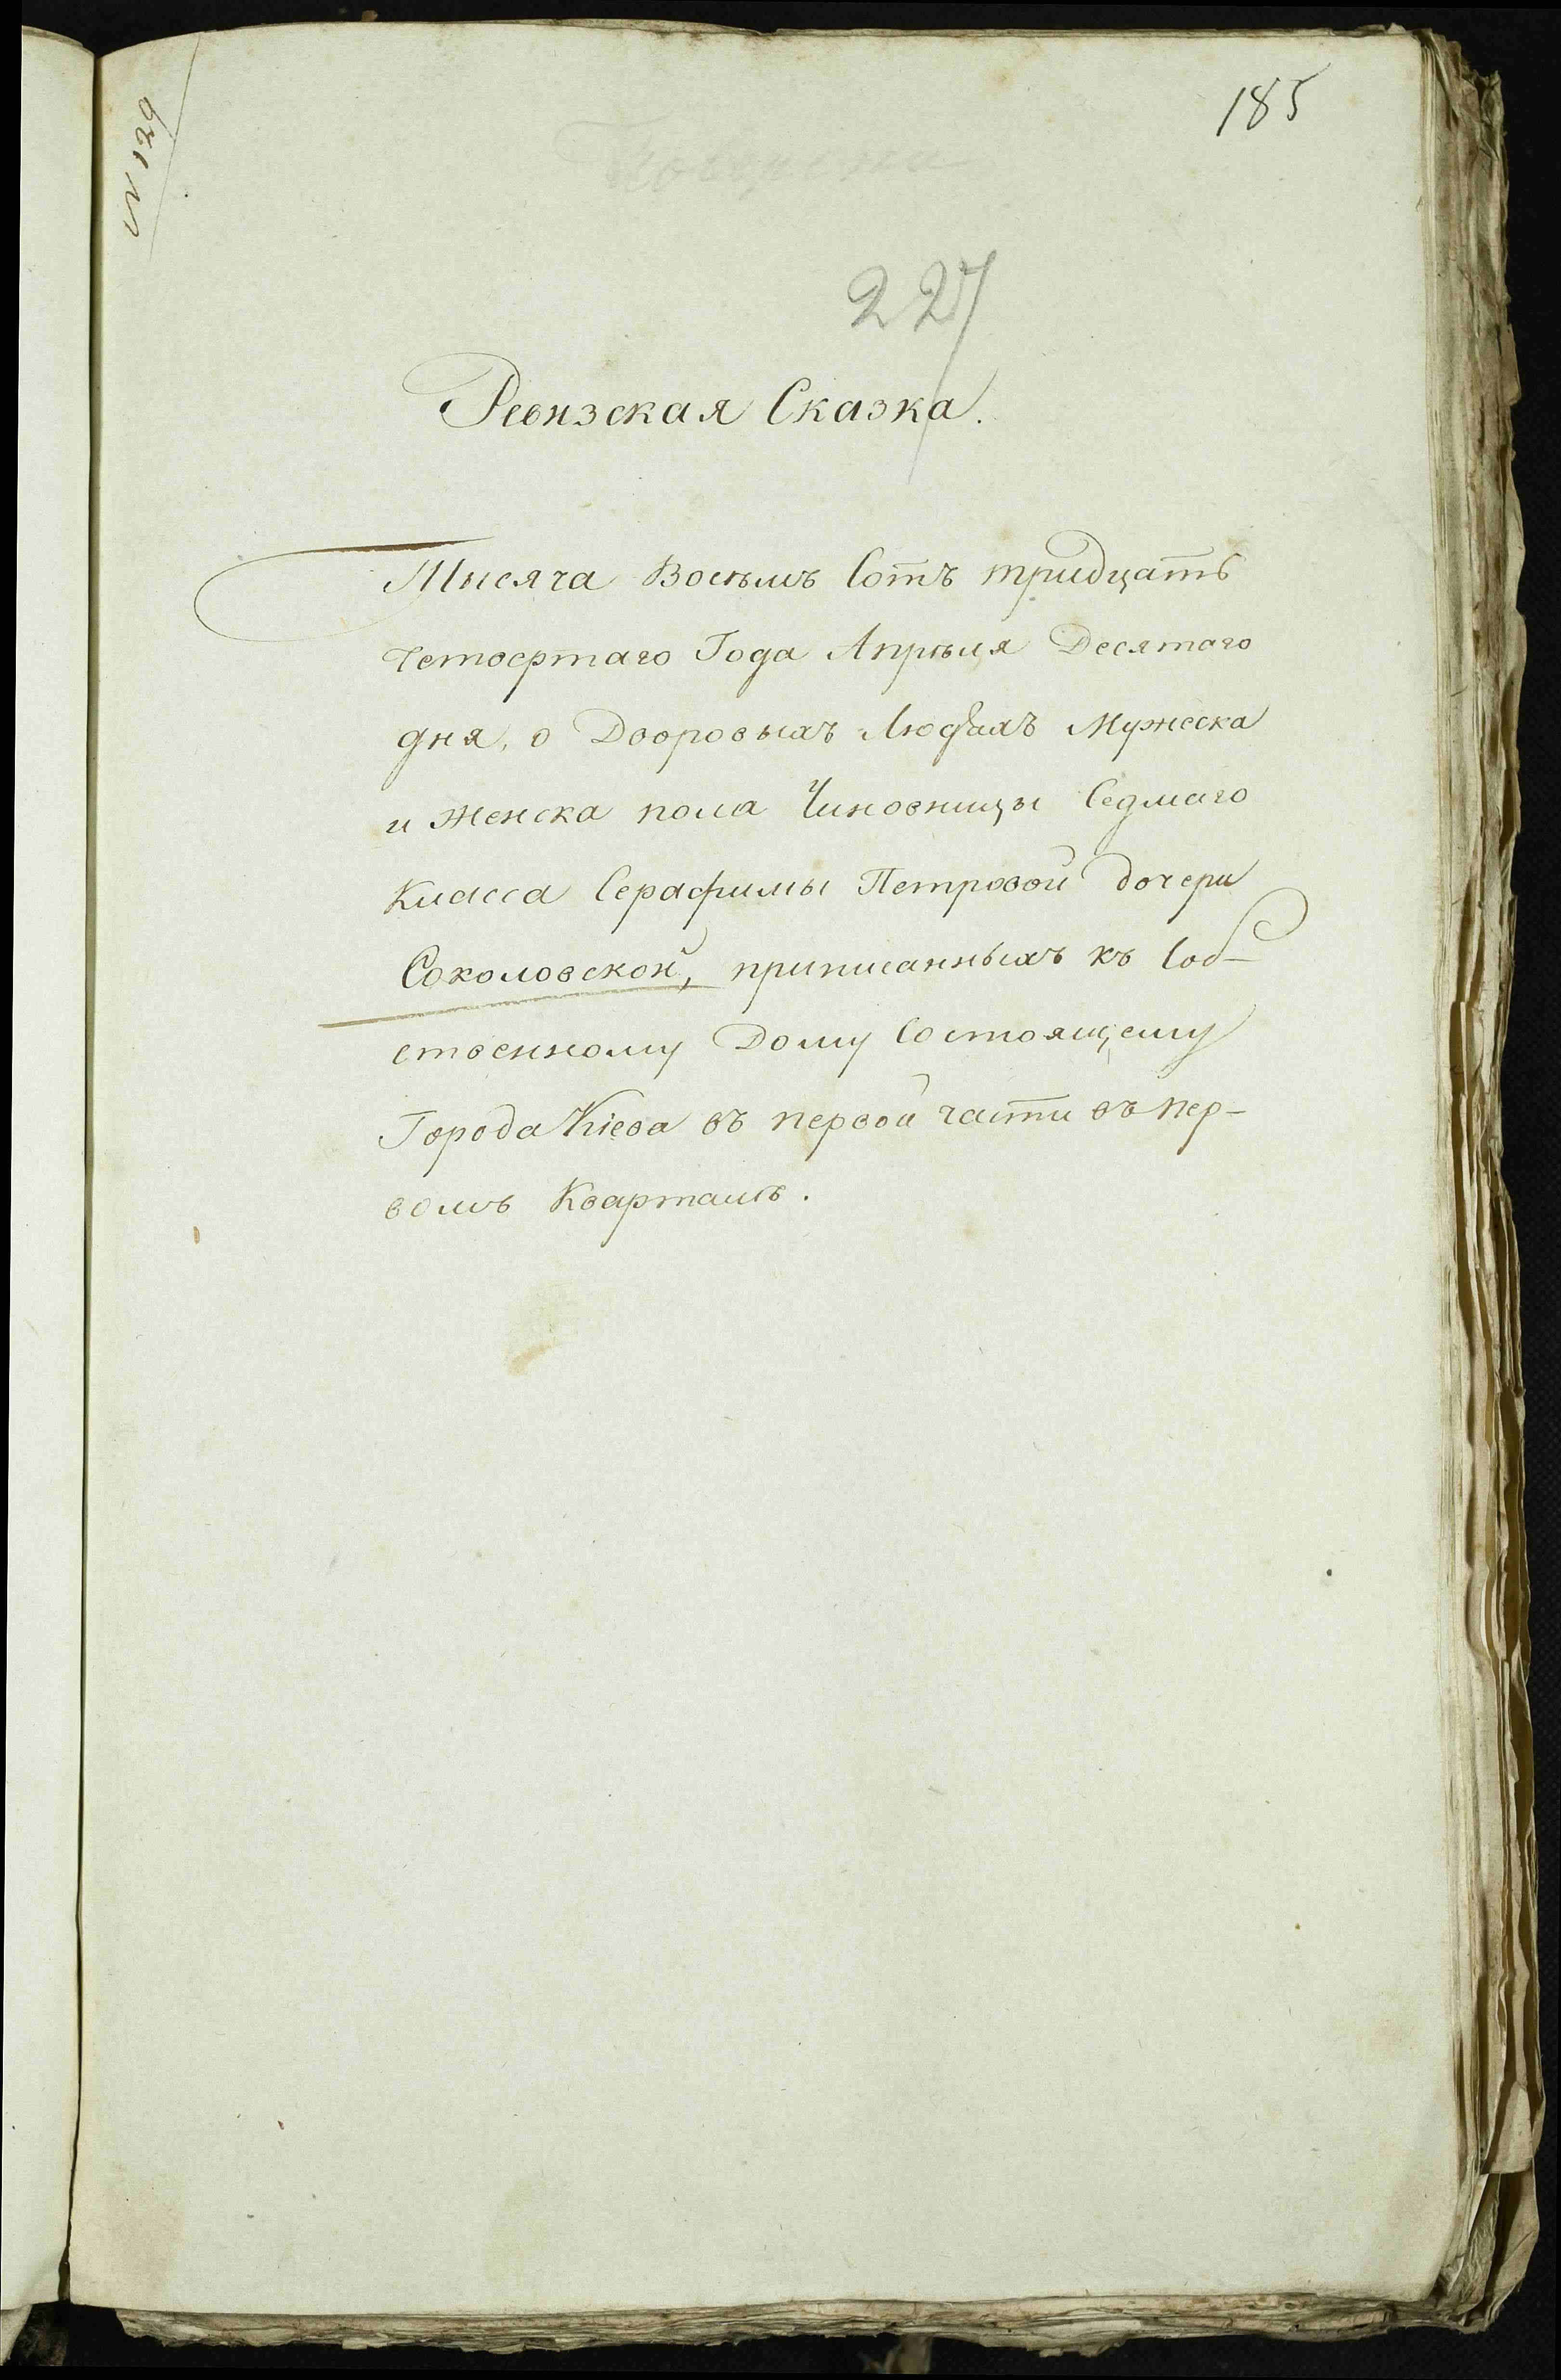 185
227
Ревизская Сказка.
Тысяча Восемъ Сотъ тридцать
четвертаго Года Апреля Десятаго
дня, о Дворовыхъ Людяхъ Мужеска
и женска пола Чиновницы Седмаго
Класса Серафимы Петровой дочери
Соколовской, приписанныхъ къ Соб-
ственному Дому Состоящему
Города Кіева въ первой части въ пер-
вомъ Кварталѣ.